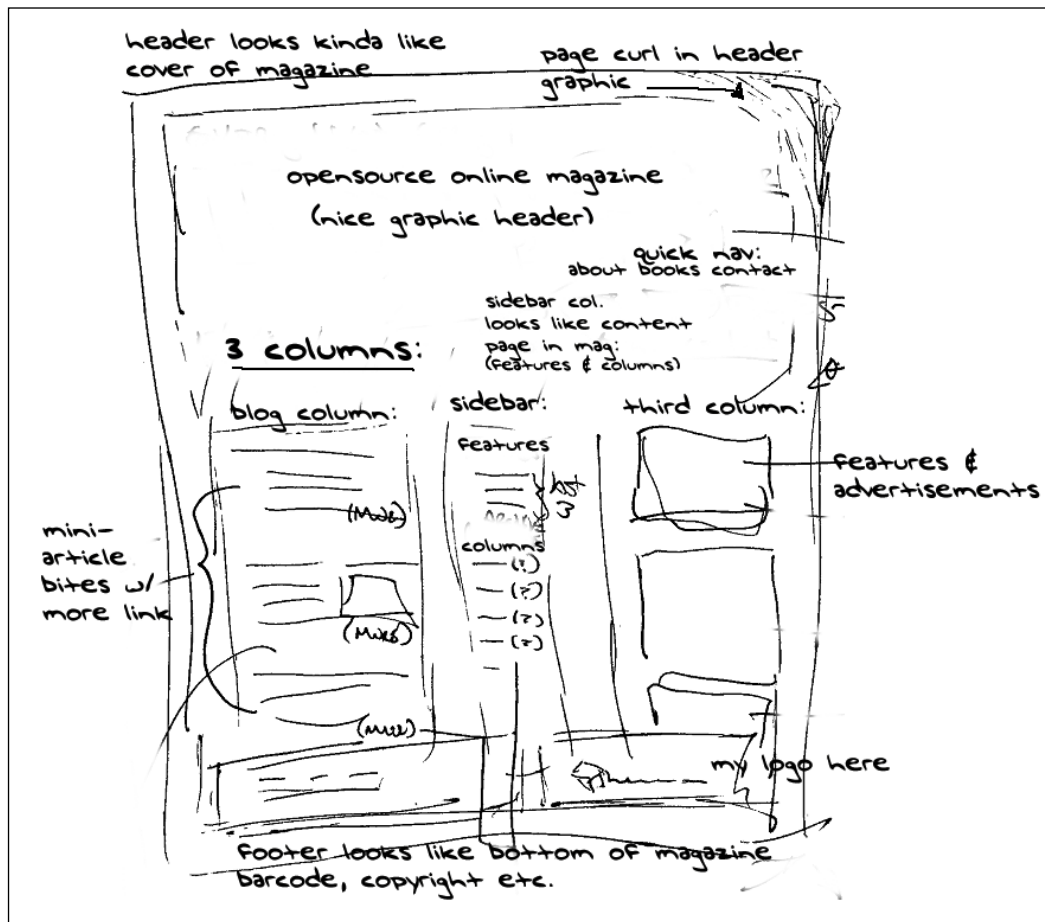 header looks kinda like
cover of magazine
page curl in header
graphic
opensource online magazine
(nice graphic header)
quick nav:
about books contact
sidebar col.
looks like content
page in mag:
(features & columns)
3 columns:
blog column:
sidebar:
third column:
features
features &
advertisements
(More)
mini-
article
bites w/
more link
columns
(?)
(?)
(?)
(?)
(More)
(More)
my logo here
footer looks like bottom of magazine
barcode, copyright etc.